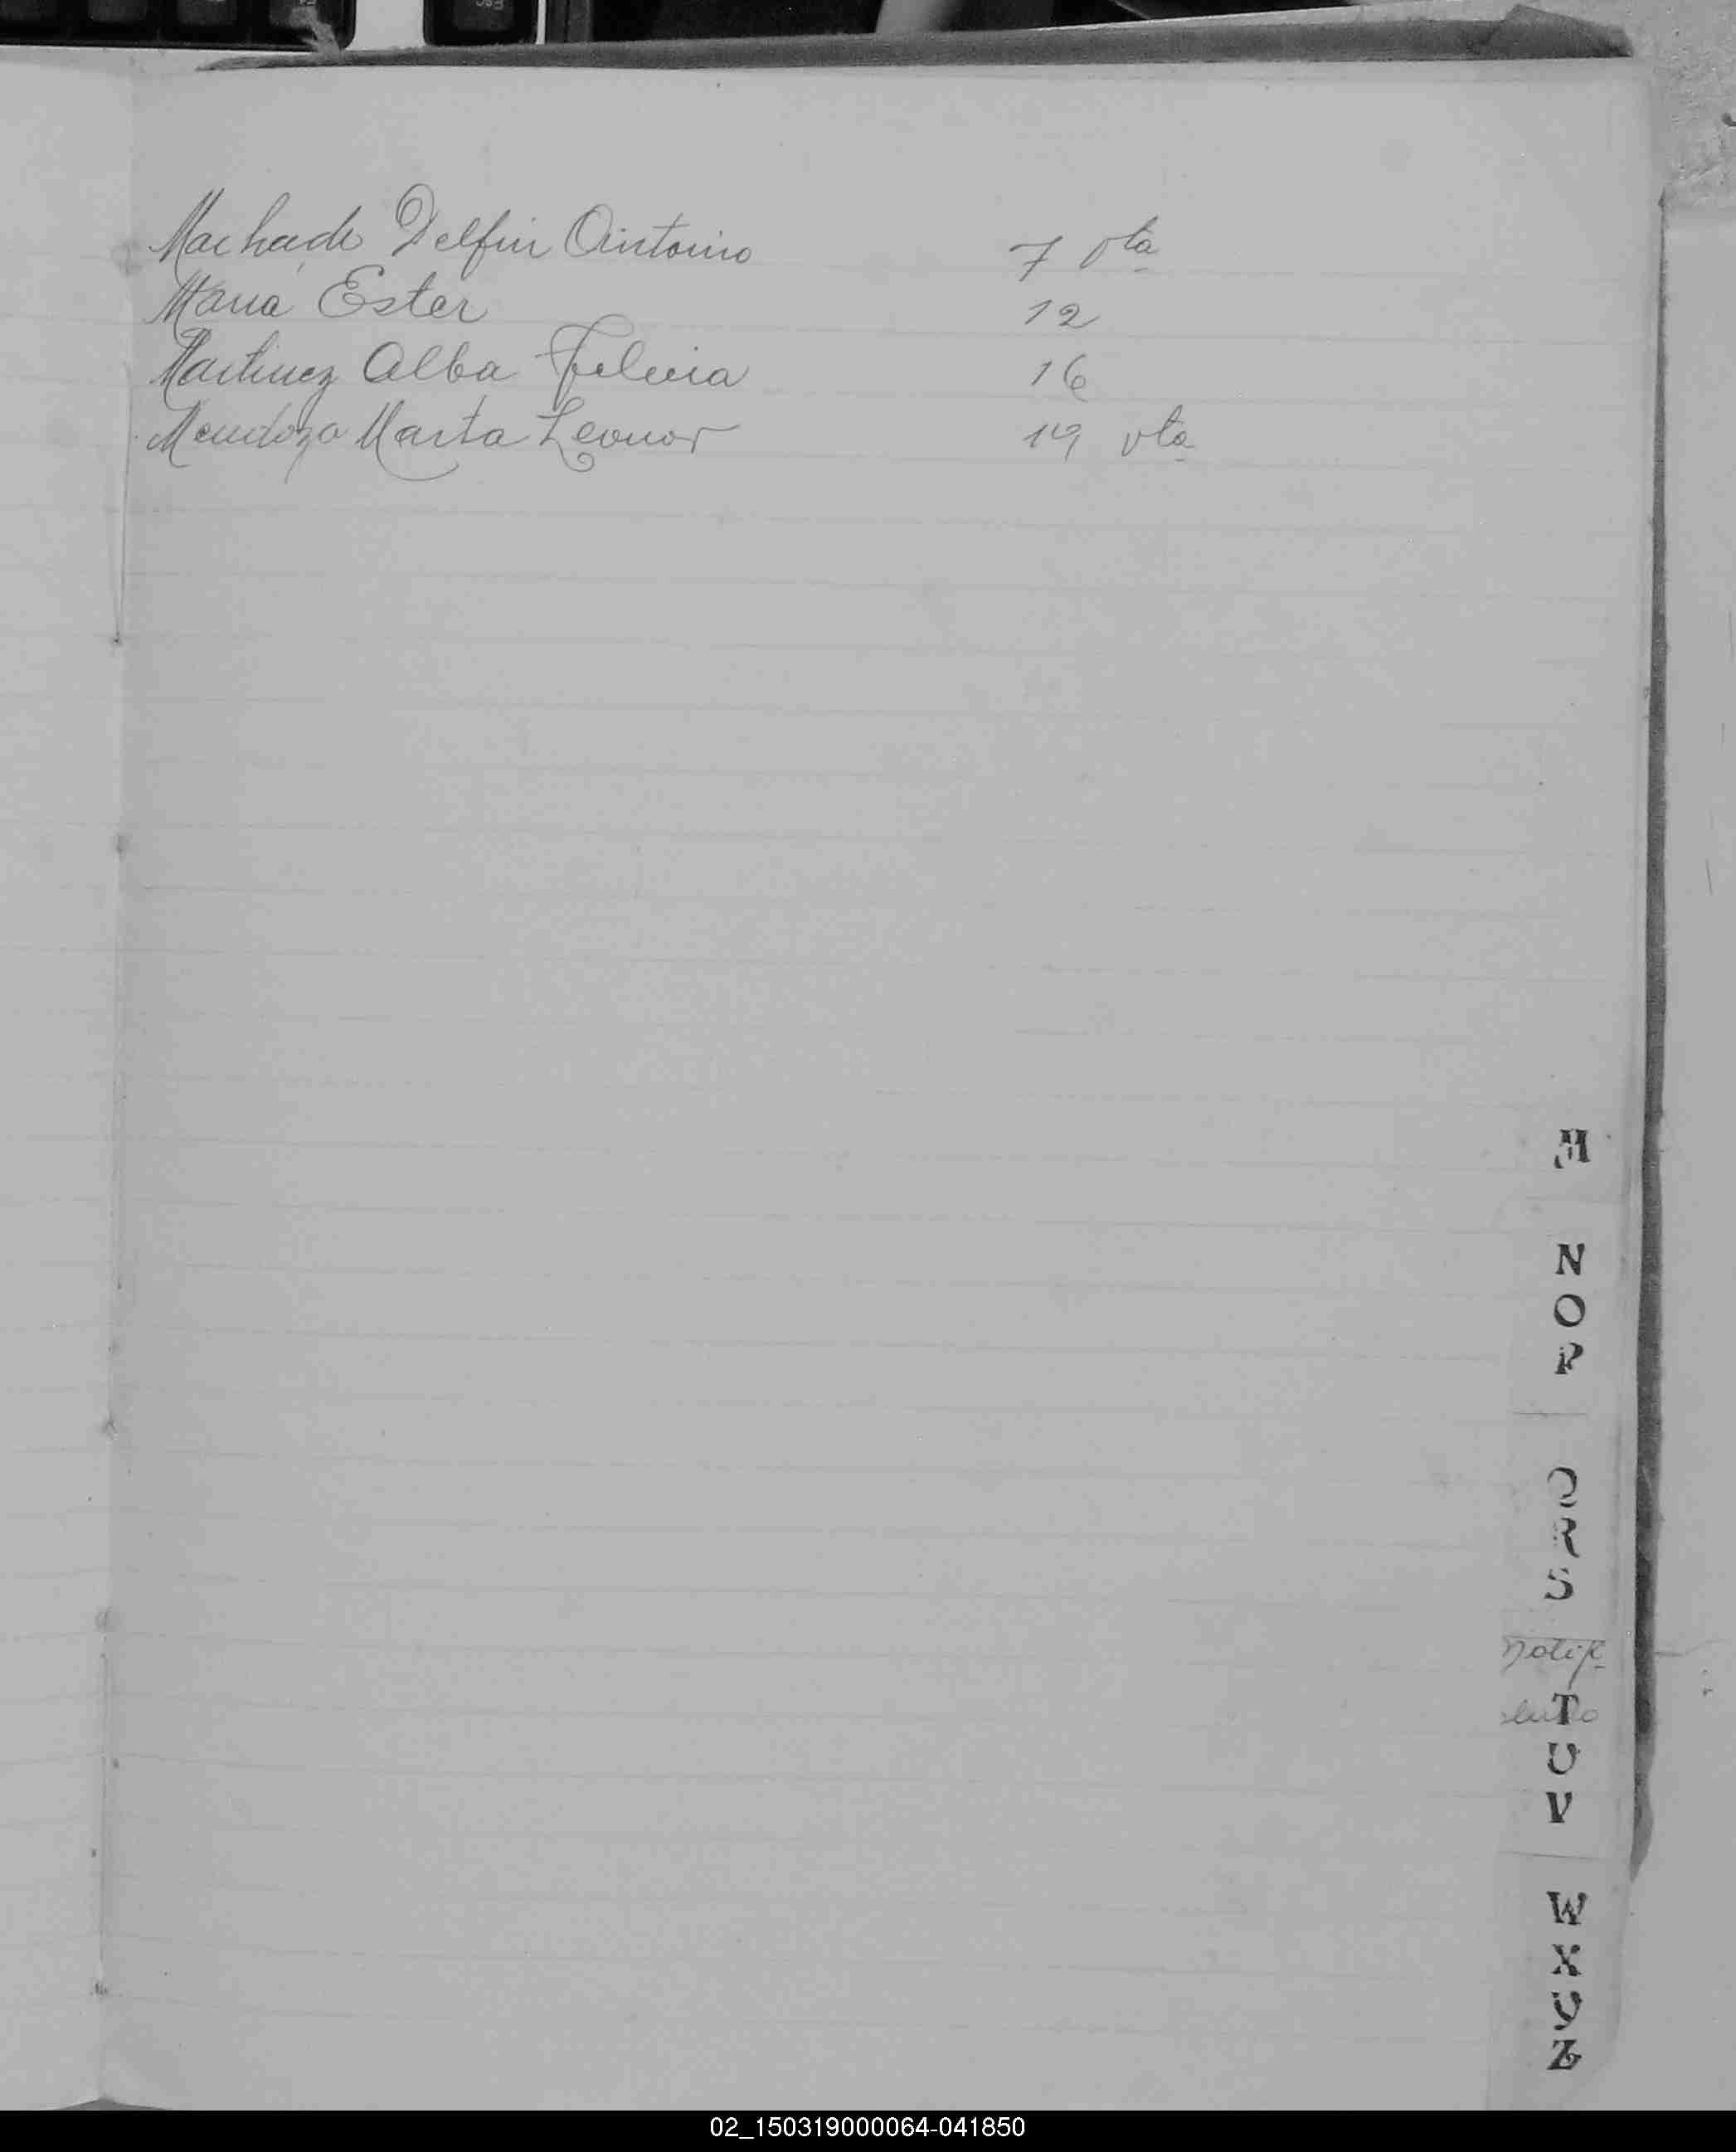 Machado Delfin Antonio 7 vta
Maria Ester 12
Martinez Alba Felicia 16
Mendoza Marta Leonor 19 vta
M
N
O
P
Q
R
S
notif
T
U
V
W
X
Y
Z
02_150319000064-041850